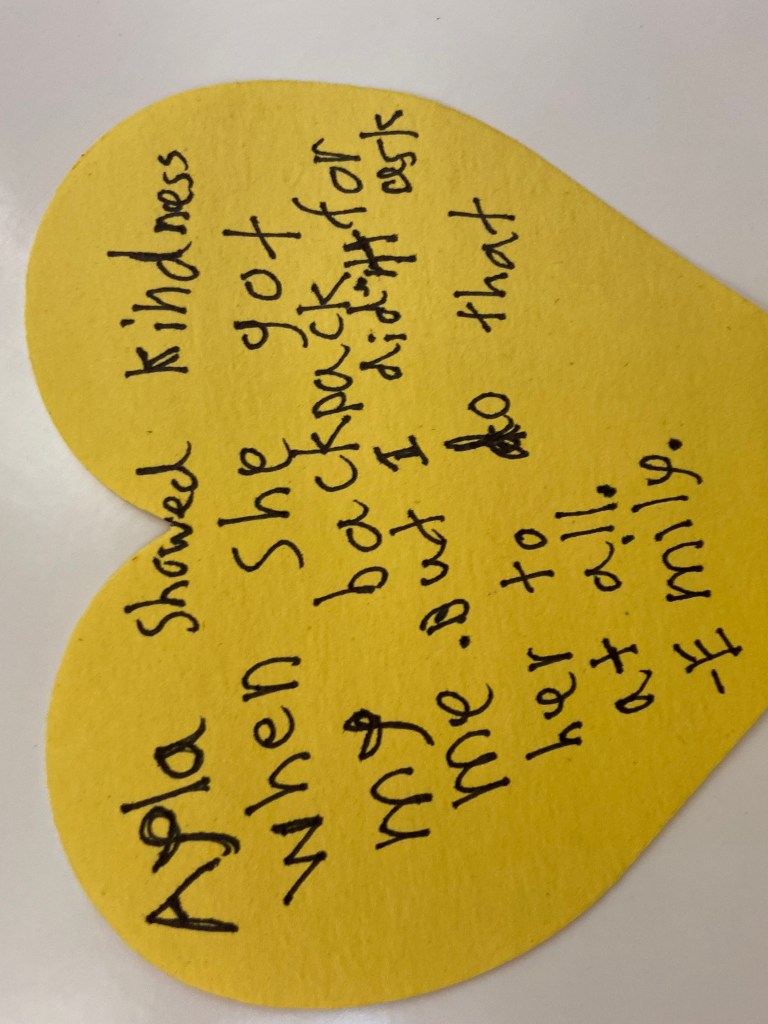 Ayla showed kindness
when she got
my backpack for
me. But I didn't ask
her to do that
at all.
-Emily.